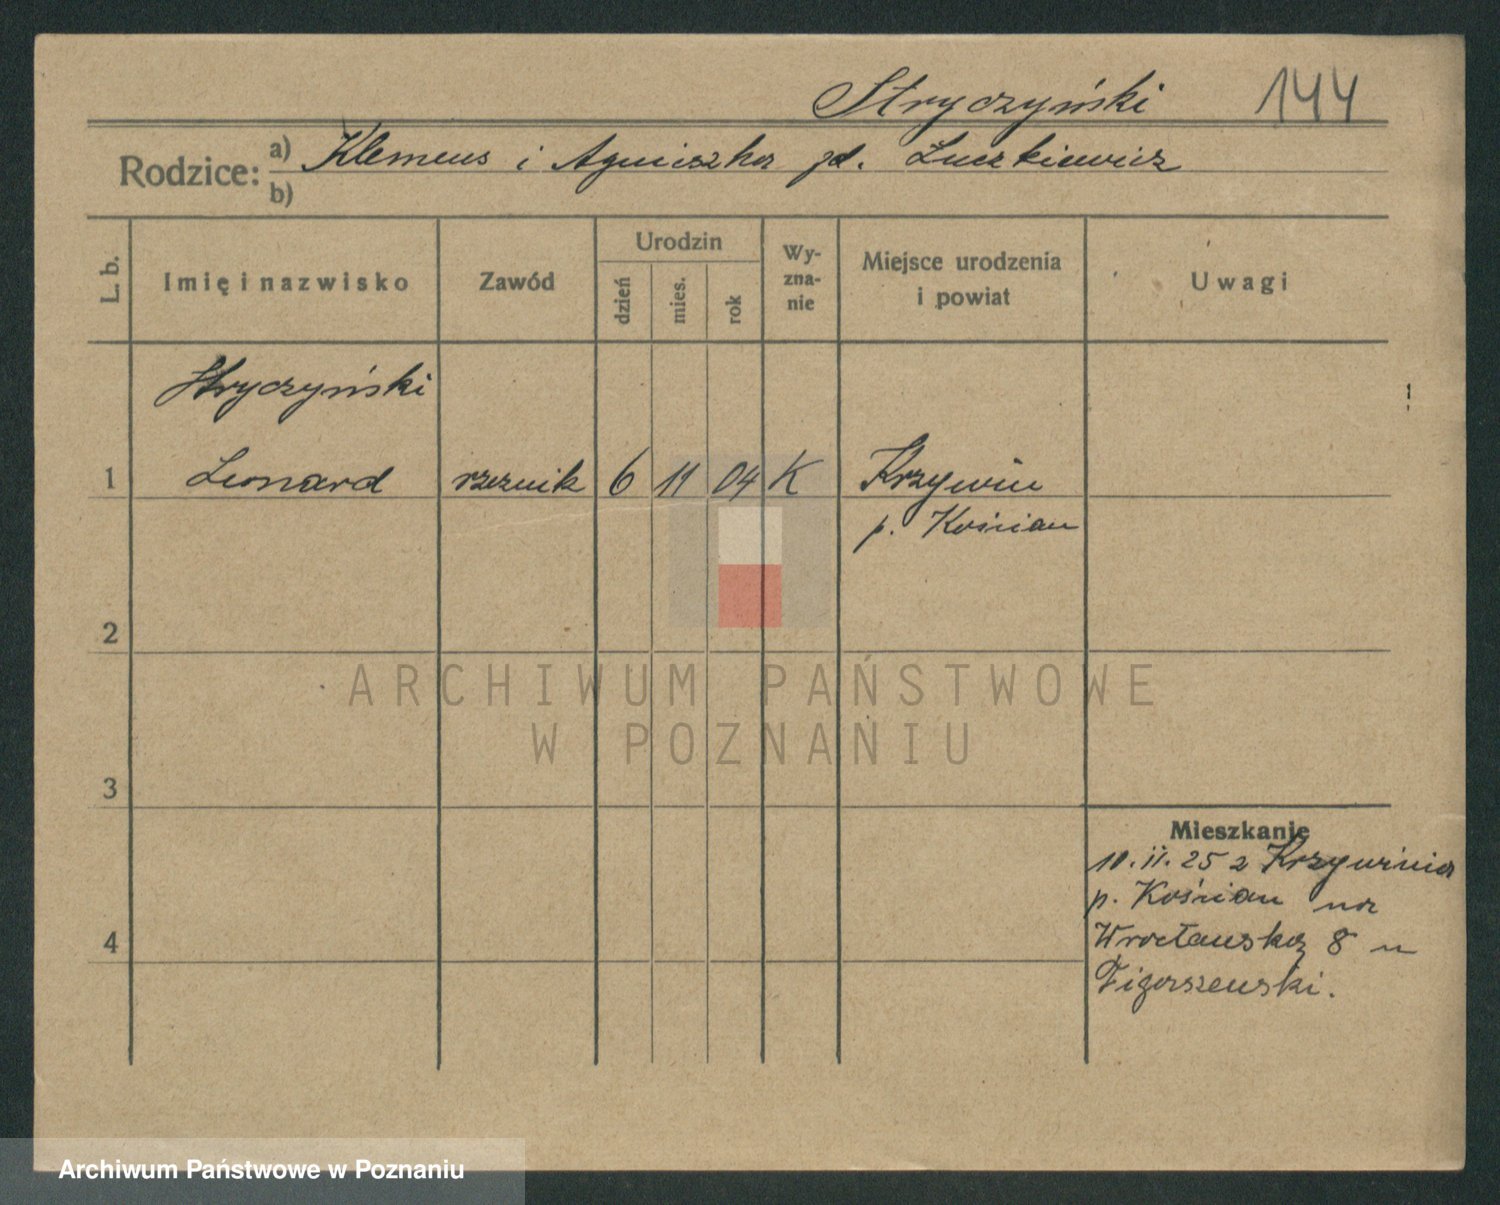 Stryczyński 144
Rodzice: a) Klemens i Agnieszka zd. Łuczkiewicz
b)
L. b. Imię i nazwisko Zawód Urodzin dzień mies. rok Wy-zna-nie Miejsce urodzenia i powiat Uwagi
Stryczyński
1 Leonard rzeznik 6 11 04 K Krzywin
p. Kościan
2
ARCHIWUM PAŃSTWOWE
W POZNANIU
3
Mieszkanie
10.II.25 z Krzywinia
p. Kościan na
4 Wrocławską 8 u
Archiwum Państwowe w Poznaniu